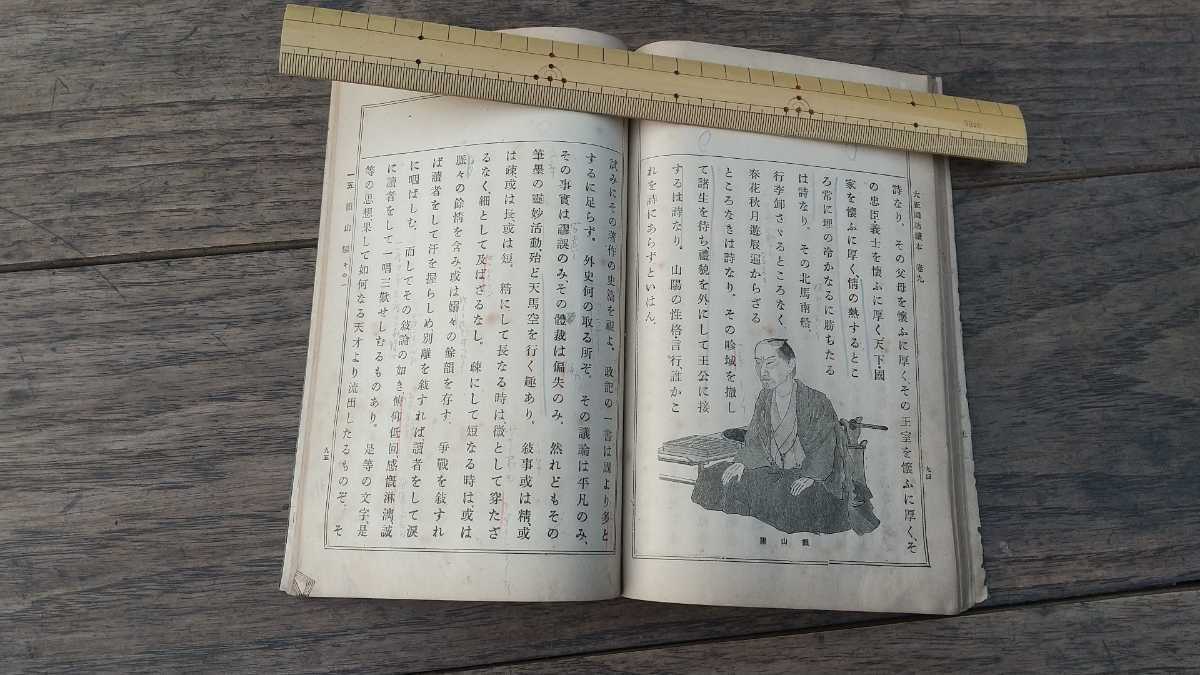 大正國語讀本 卷九
九四
詩なり。その父母を懷ふに厚く、その王室を懷ふに厚く、そ
の忠臣・義士を懷ふに厚く、天下・國
家を懷ふに厚く、情の熱するとこ
ろ常に理の冷かなるに勝ちたる
は詩なり。その北馬南船、
行李卸さゞるところなく、
春花秋月遊屐遍からざる
ところなきは詩なり。その畛域を撤し
て諸生を待ち、禮貌を外にして王公に接
するは詩なり。山陽の性格・言行、誰かこ
れを詩にあらずといはん。
賴山陽
試みにその著作の史篇を視よ。政記の一書は固より多と
するに足らず。外史何の取る所ぞ。その議論は平凡のみ、
その事實は謬誤のみ、その體裁は偏失のみ。然れどもその
筆墨の靈妙活動、殆ど天馬空を行く趣あり。敍事或は精、或
は疎、或は長、或は短。精にして長なる時は、微として穿たざ
るなく、細として及ばざるなし。疎にして短なる時は或は
脈々の餘情を含み、或は嫋々の餘韻を存す。爭戰を敍すれ
ば讀者をして汗を握らしめ、別離を敍すれば、讀者をして淚
に咽ばしむ。而してその敍論の如き、俯仰低回、感慨淋漓、誠
に讀者をして一唱三歎せしむるものあり。是等の文字、是
等の思想、果して如何なる天才より流出したるものぞ。そ
一五 賴山陽 その一
九五